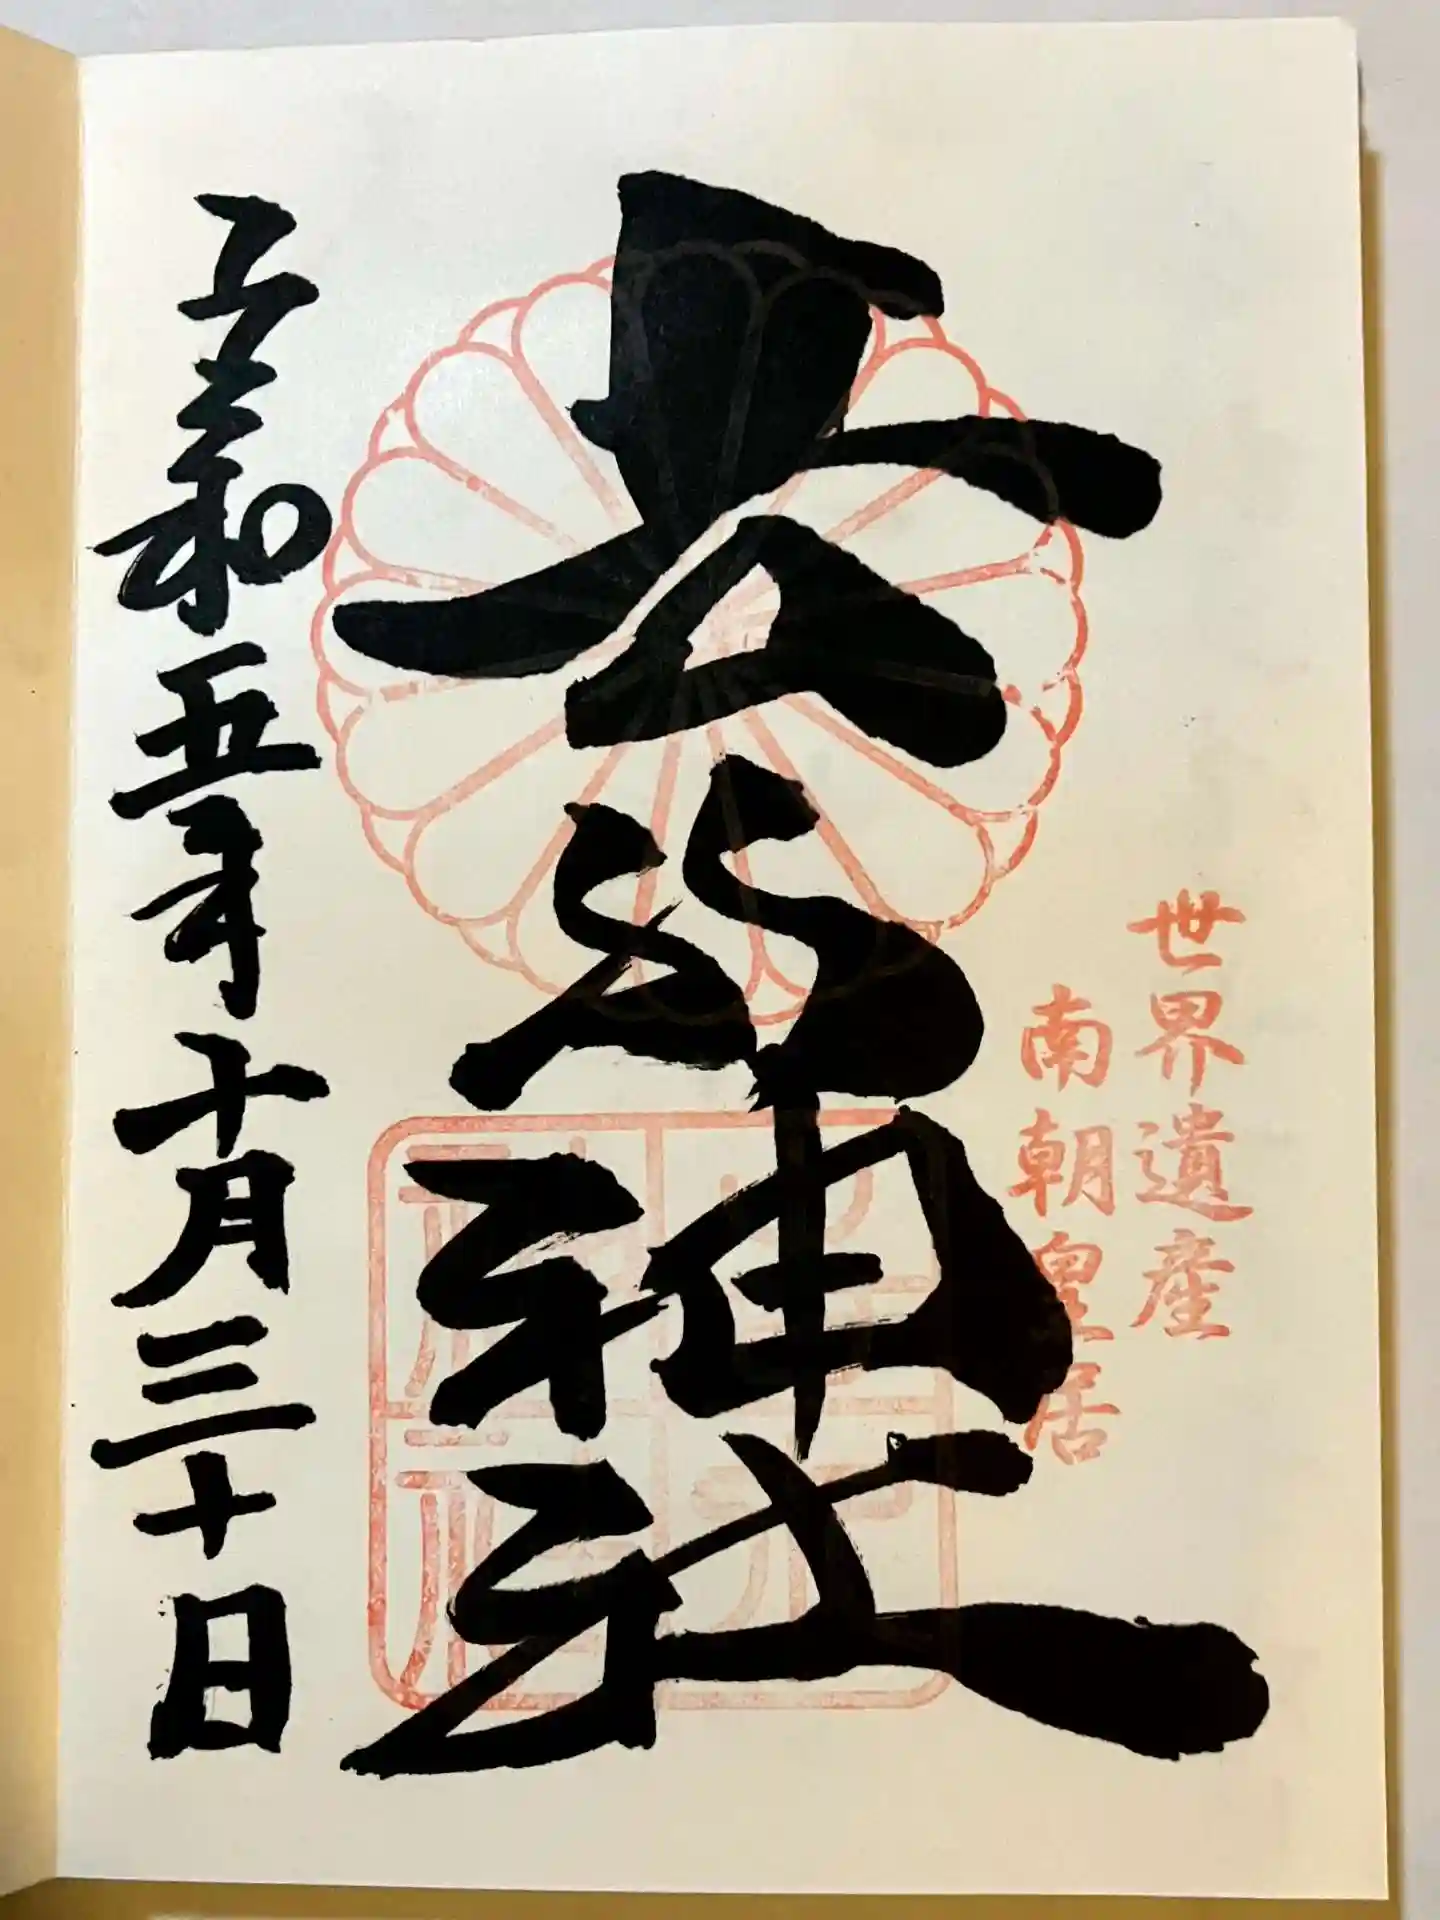 世界遺産
南朝皇居
吉水神社
令和五年十月三十日